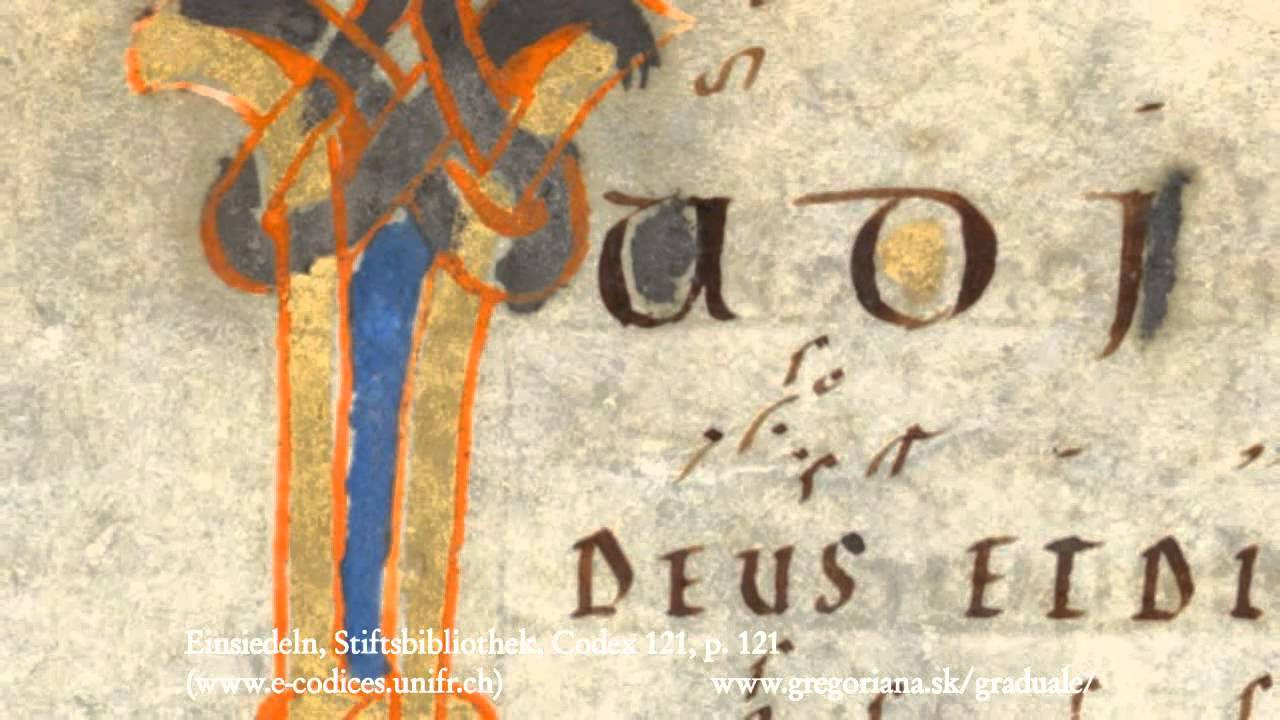 IUDI
DEUS ET DI
Einsiedeln, Stiftsbibliothek, Codex 121, p. 121
(www.e-codices.unifr.ch) www.gregoriana.sk/graduale/